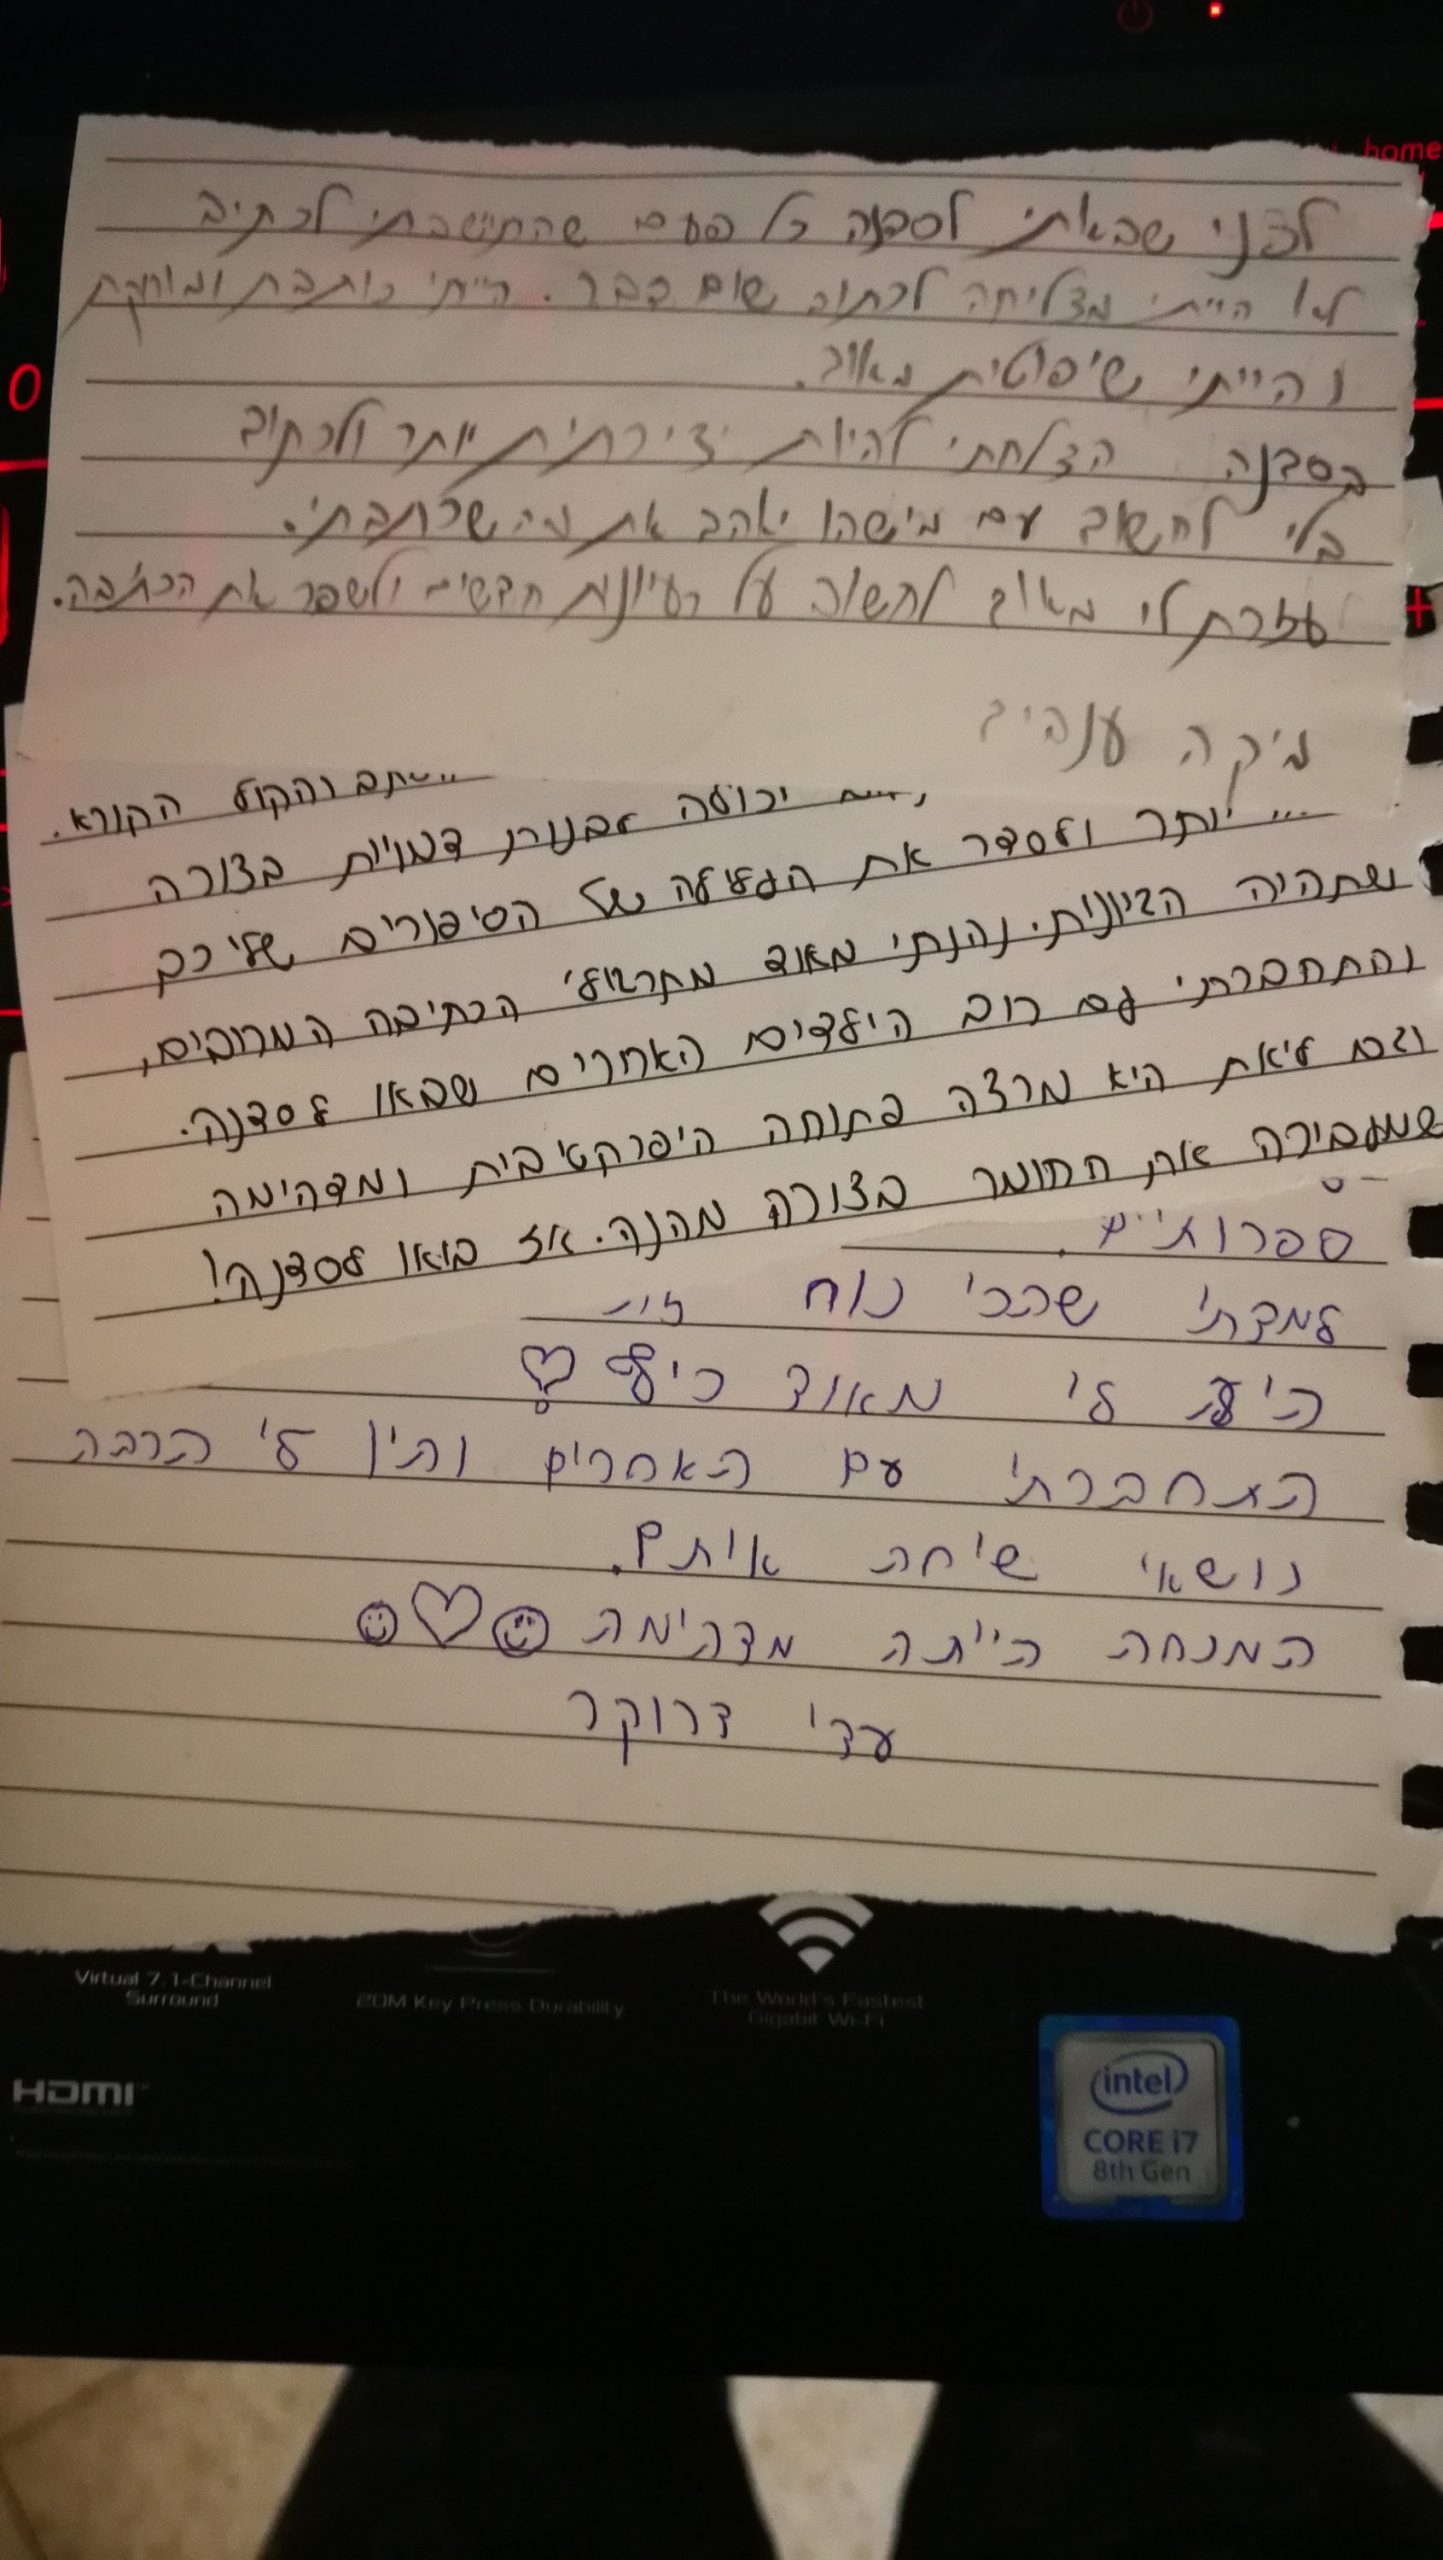 home
0
לפני שבאתי לסדנה כל פעם שהתיישבתי לכתוב
לא הייתי מצליחה לכתוב שום דבר. הייתי כותבת ומוחקת
והייתי שיפוטית מאוד.
בסדנה הצלחתי להיות יצירתית יותר ולכתוב
בלי לחשוב עם מישהו יאהב את מה שכתבתי.
עזרת לי מאוד לחשוב על רעיונות חדשים ולשפר את הכתיבה.
+
מיקה
והקול הקורא.
יכולה לבנות דמויות בצורה
יותר ולסדר את העלילה של הסיפורים שליכם
שתהיה הגיונית. נהנתי מאוד מתרגולי הכתיבה המרובים,
והתחברתי עם רוב הילדים האחרים שבאו לסדנה.
וגם ליאת היא מרצה פתוחה היפרקטיבית ומדהימה
שמעבירה את החומר בצורה מהנה. אז בואו לסדנה!
ספרותיים.
למדתי שהכי נוח
היה לי מאוד כיף
התחברתי עם האחרים והיו לי הרבה
נושאי שיחה איתם.
המנחה הייתה מדהימה
עדי דרוקר
Virtual 7.1-Channel
Surround
20M Key Press Durability
The World's Fastest
Gigabit Wi-Fi
HDMI
intel
CORE i7
8th Gen